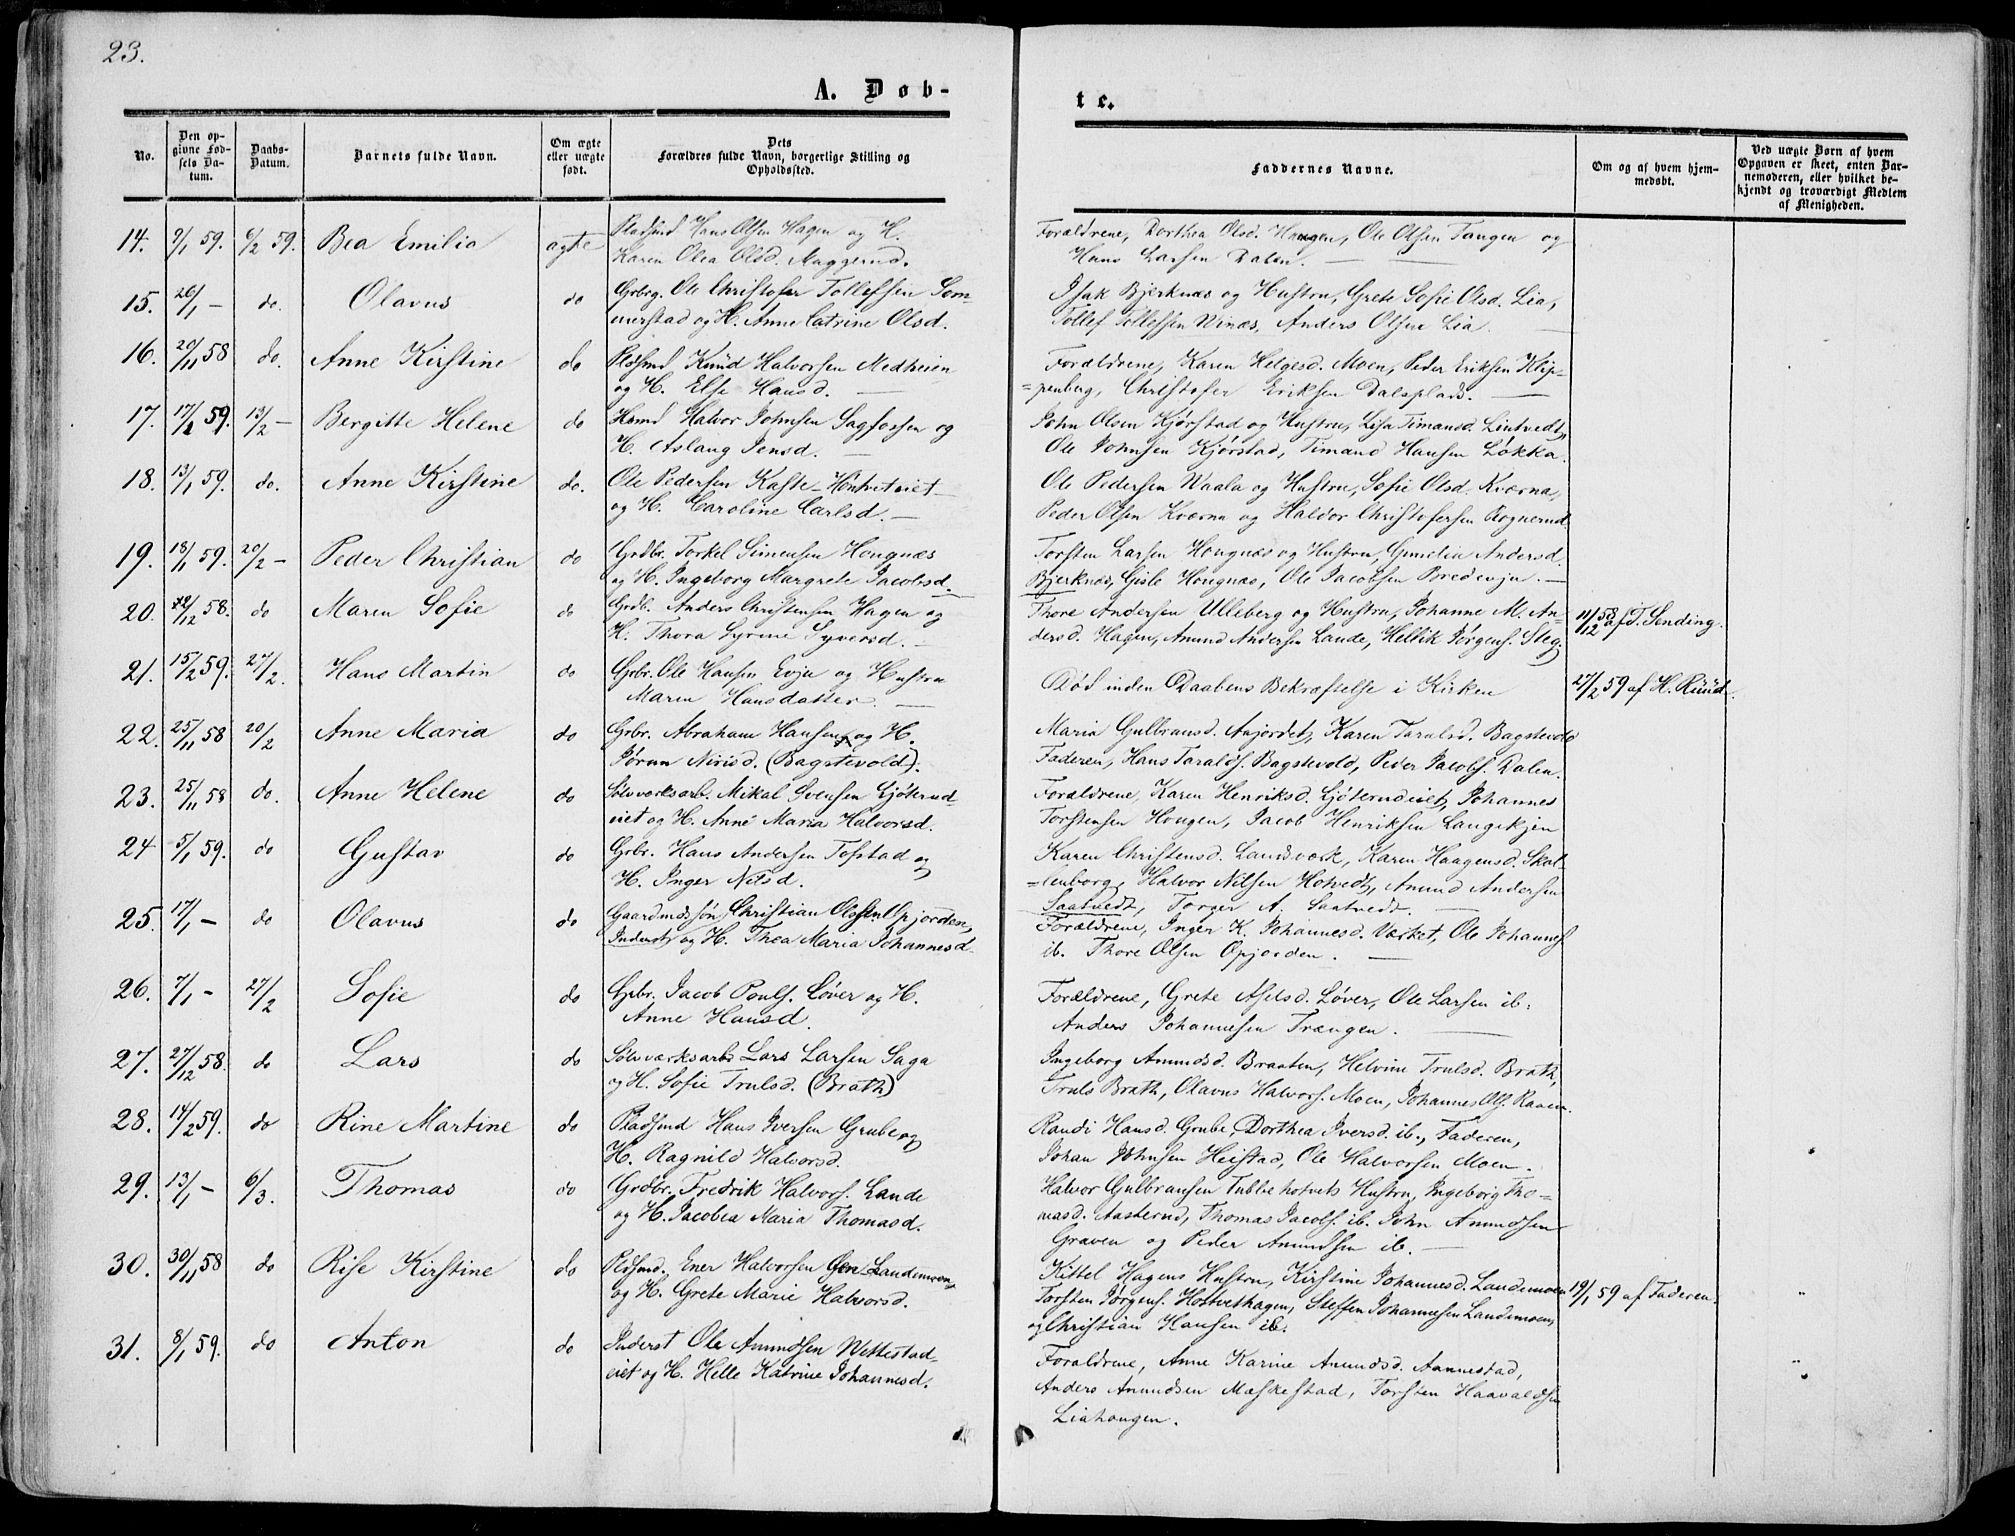 23.
A. Døb-
te.
No.
Den op-
givne Fød-
sels Da-
tum.
Daabs-
Datum.
Barnets fulde Navn.
Om ægte
eller uægte
født.
Dets
Forældres fulde Navn, borgerlige Stilling og
Opholdssted.
Faddernes Navne.
Om og af hvem hjem-
medøbt.
Ved uægte Børn af hvem
Opgaven er skeet, enten Bar-
nemoderen, eller hvilket be-
kjendt og troværdigt Medlem
af Menigheden.
14. 9/1 59. 6/2 59. Bea Emilia ægte Pladsmd Hans Olsen Hagen og H.
Karen Olea Olsd.
Forældrene, Dorthea Olsd. Haugen, Ole Olsen Tangen og
Hans Larsen Dalen.
15. 26/1 — do. Olavus do Grbrg. Ole Christofer Tollefsen Som-
merstad og H. Anne Catrine Olsd.
Isak Bjerknæs og Hustru, Grete Sofie Olsd. Lia,
Tollef Tollefsen Winæs, Anders Olsen Lia.
16. 20/11 58 do. Anne Kirstine do Pldsmd Knud Halvorsen Medheien
og H. Else Hansd.
Forældrene, Karen Helgesd. Moen, Peder Eriksen Klip-
=penberg, Christofer Eriksen Dalsplads.
17. 17/1 59. 13/2 — Bergitte Helene do Hsmd Halvor Johnsen Sagfossen og
H. Aslaug Jensd.
John Olsen Kjørstad og Hustru, Lisa Timansd. Lintvedt,
Ole Johnsen Kjørstad, Timand Hansen Løkka.
18. 13/1 59. do. Anne Kirstine do. Ole Pedersen Kaste-Hontveteiet
og H. Caroline Carlsd.
Ole Pedersen Waala og Hustru, Sofie Olsd. Kværna,
Peder Olsen Kværna og Haldor Christofersen Rognerud
19. 18/1 59. 20/2 — Peder Christian do Grdbr. Torkel Simensen Hougnæs
og H. Ingeborg Margrete Jacobsd.
Torsten Larsen Hougnæs og Hustru, Gunelia Andersd.
Bjerknæs, Gisle Hougnæs, Ole Jacobsen Bredevejn.
20. /12 58. do Maren Sofie do Grdb. Anders Christensen Hagen og
H. Thora Syrine Syversd.
Thore Andersen Ulleberg og Hustru, Johanne M. An-
dersd. Hagen, Amund Andersen Lande, Hellik Jørgens. Steg.
11/12 58 af T. Sending.
21. 15/2 59. 27/2. Hans Martin do Grbr. Ole Hansen Evju og Hustru
Maren Hansdatter.
Død inden Daabens Bekræftelse i Kirken
27/2 59 af H. Ruud.
22. 25/11 58 20/2 Anne Maria do Grbr. Abraham Hansen og H.
Jørun Nirisd. (Bagstevold).
Maria Gulbransd. Anjordet, Karen Taralsd. Bagstevold
Faderen, Hans Taralds. Bagstevold, Peder Jacobs. Dalen.
23. 25/11 58 do. Anne Helene do Sølvværksarb. Mikal Svensen Ljøterud-
eiet og H. Anne Maria Halvorsd.
Forældrene, Karen Henriksd. Ljøterudeiet, Johannes
Torstensen Hougen, Jacob Henriksen Langekjen
24 5/1 59. do Gustav do Grbr. Hans Andersen Tofstad og
H. Inger Nilsd.
Karen Christensd. Landsværk, Karen Haagensd. Skol-
=lenborg, Halvor Nilsen Hotvedt, Amund Andersen
Saatvedt, Torger A. Saatvedt.
25. 17/1 — do Olavus do Gaardmdssøn Christian Olssen Opjorden,
Inderst og H. Thea Maria Johannesd.
Forældrene, Inger K. Johannesd. Værket, Ole Johannes.
ib. Thore Olsen Opjorden.
26. 7/1 — 27/2 Sofie do Grbr. Jacob Pouls. Løver og H.
Anne Hansd.
Forældrene, Grete Axelsd. Løver, Ole Larsen ib.
Anders Johannesen Trængen.
27. 27/12 58. do Lars do Sølvværksarb Lars Larsen Saga
og H. Sofie Trulsd. (Brath)
Ingeborg Amundsd. Braaten, Helvine Trulsd. Brath,
Truls Brath, Olavus Halvors. Moen, Johannes Ols. Raaen.
28. 14/2 59. do Rine Martine do Pladsmd Hans Iversen Grube og
H. Ragnild Halvorsd.
Randi Hansd. Grube, Dorthea Iversd. ib., Faderen,
Johan Johnsen Heistad, Ole Halvorsen Moen.
29. 13/1 — 6/3. Thomas do Grdbr. Fredrik Halvors. Lande
og H. Jacobea Maria Thomasd.
Halvor Gulbransen Tubbehotvets Hustru, Ingeborg Tho-
masd. Aasterud, Thomas Jacobs. ib. John Amundsen
Graven og Peder Amundsen ib.
30. 30/11 58 do Rise Kirstine do Pldsmd. Ener Halvorsen Landemoen
og H. Grete Marie Halvorsd.
Kittel Hagens Hustru, Kirstine Johannesd. Landemoen
Torsten Jørgens. Hostvethagen, Steffen Johannesen Landemoen,
og Christian Hansen ib.
19/1 59 af Faderen.
31. 8/1 59. do Anton do Inderst Ole Amundsen Wettestad-
eiet og H. Helle Katrine Johannesd.
Forældrene, Anne Karine Amundsd. Aannestad,
Anders Amundsen Mæskestad, Torsten Haavaldsen
Liahougen.